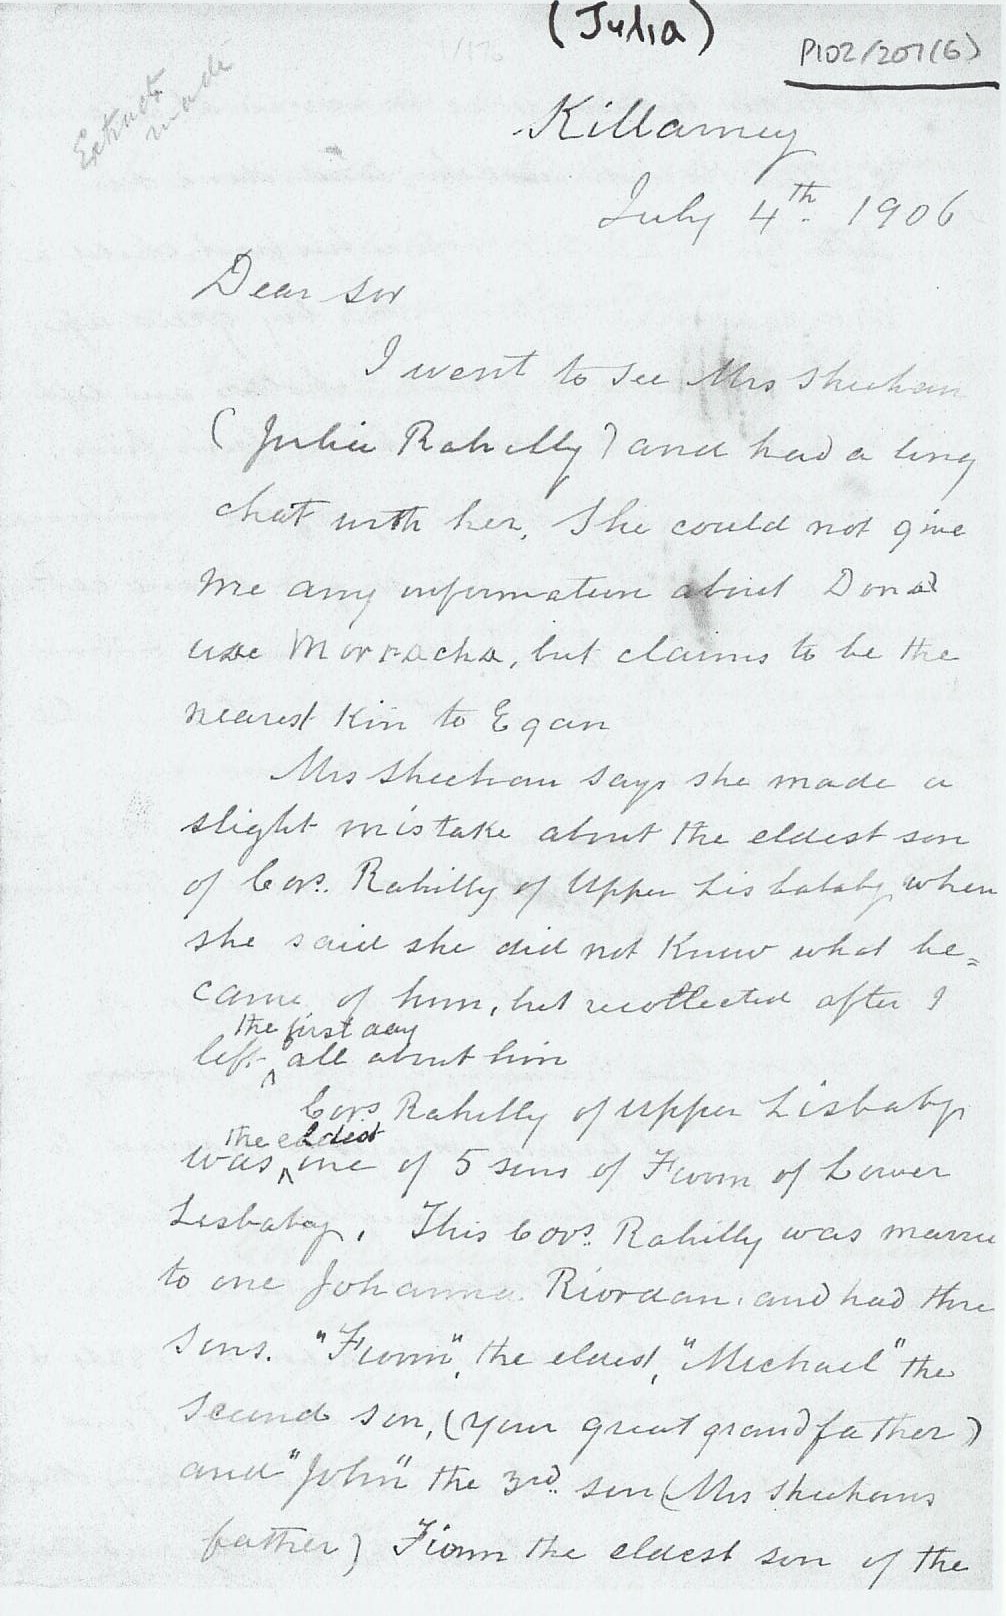 (Julia)
P102/207(6)
Extracts
made
Killarney
July 4th. 1906
Dear Sir
I went to see Mrs Sheehan
(Julia Rahilly) and had a long
chat with her, She could not give
me any information about Donal
Morracha, but claims to be the
nearest Kin to Egan
Mrs Sheehan says she made a
slight mistake about the eldest son
of Cors. Rahilly of Upper Lisbabby when
she said she did not know what be=
came of him, but recollected after I
the first day
left all about him
Cors Rahilly of Upper Lisbaby
the eldest
was one of 5 sons of Fionn of Lower
Lisbaby, This Cors. Rahilly was married
to one Johanna Riordan, and had three
sons. "Fionn", the eldest, "Michael" the
second son, (your great grandfather)
and "John" the 3rd. son (Mrs Sheehans
father) Fionn the eldest son of the